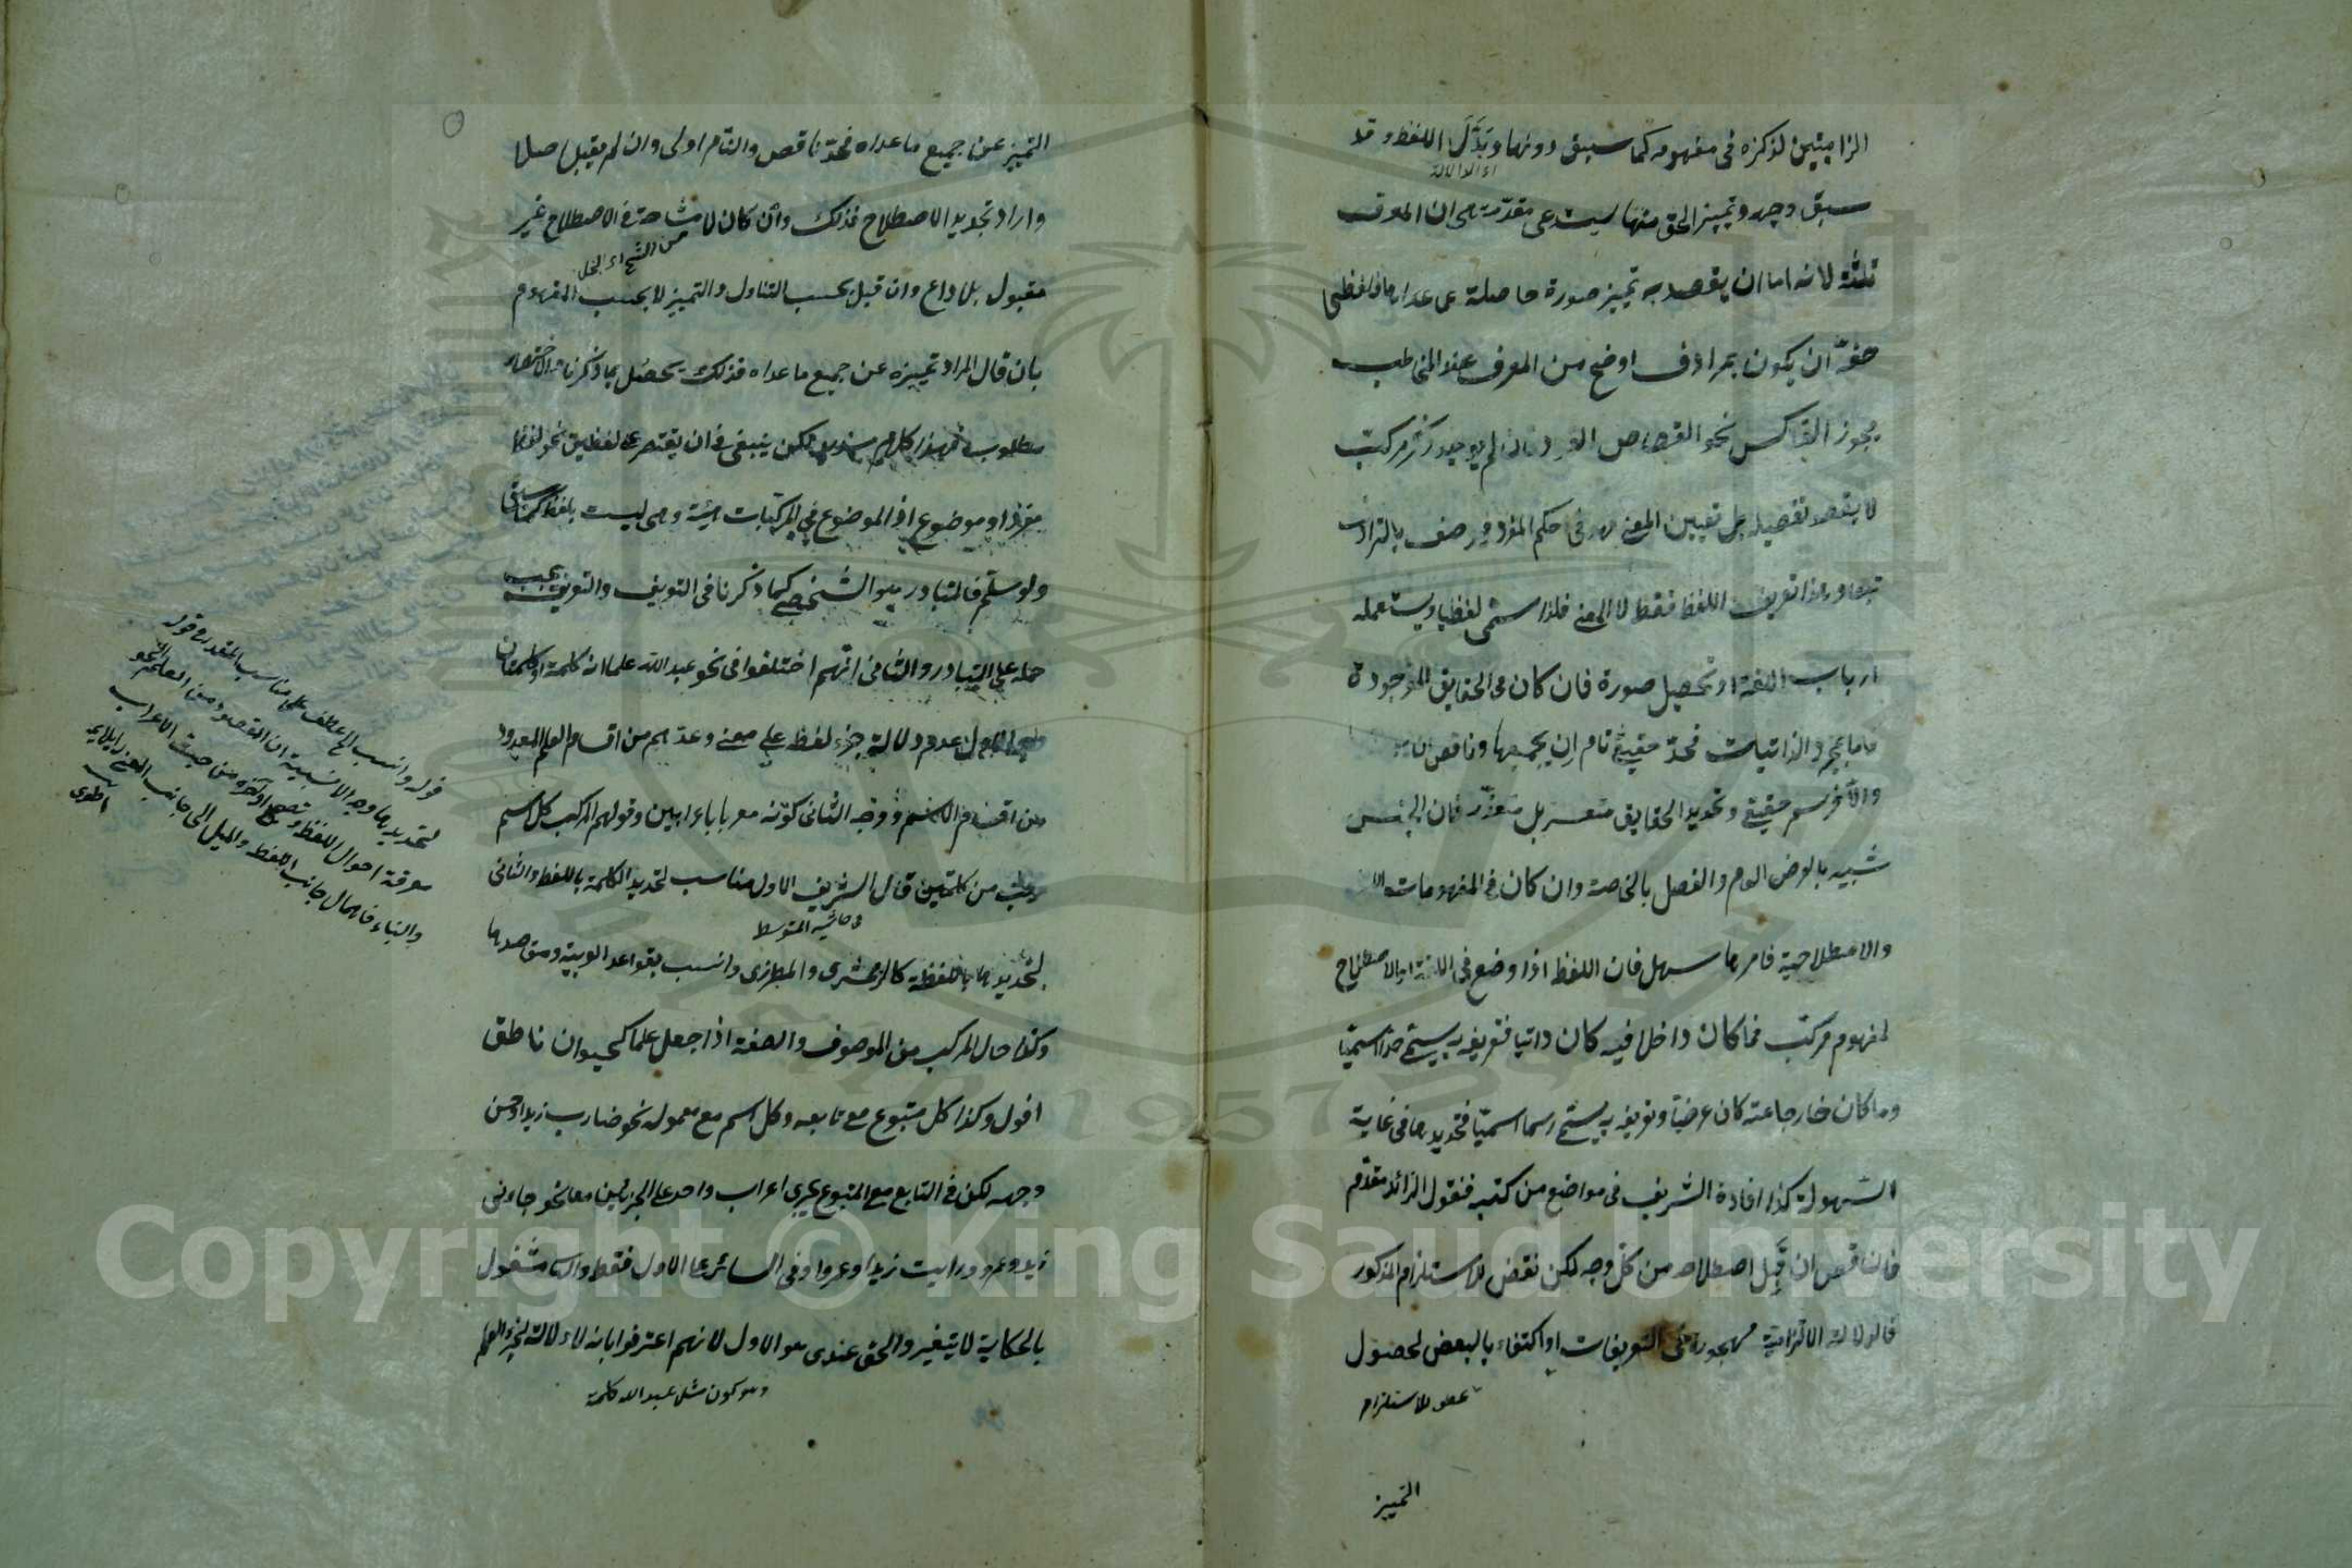 الزاميتين لذكره في مفهومه كما سبق دونها وبَدَّلَ اللفظ وقد
اى الدلالة
سبق وجهه وتمييز الحق منها يستدعى مقدّمة هى ان المعرف
ثلثة لانه اما ان يقصد به تمييز صورة حاصلة عن عداها فلفظى
حقه ان يكون بمرادف اوضح من المعرف عند المخاطب
يجوز التعاكس نحو القصاص القود فان لم يوجد ذكر مركب
لا يقصد تفصيله بل تعيين المعنى فهو في حكم المفرد فيوصف بالترادف
تبعا وهذا تعريف اللفظ فقط لا المعنى فلذا سمّى لفظيا ويستعمله
ارباب اللغة او تحصيل صورة فان كان فى الحقايق الموجودة
فاما بمجرد الذاتيات فحدّ حقيقى تام ان بجميعها وناقص ان
والا فرسم حقيقى وتحديد الحقايق متعسر بل متعذّر فان الجنس
شبيه بالعرض العام والفصل بالخاصة وان كان فى المفهومات
والاصطلاحية فامرها سهل فان اللفظ اذا وضع فى اللغة او الاصطلاح
لمفهوم مركب فما كان داخلا فيه كان ذاتيا فتعريفه به يسمى حدا اسميا
وما كان خارجا عنه كان عرضيا وتعريفه به يسمى رسما اسميا فتحديدها فى غاية
السهولة كذا افاده الشريف فى مواضع من كتبه فنقول الزائد مقدّم
فالناقص ان قبل اصطلاحه من كل وجه لكن نقض للاستلزام المذكور
فالدلالة الالتزامية مهجورة فى التعريفات او اكتفاء بالبعض لحصول
للاستلزام
التمييز
التمييز عن جميع ما عداه فحدّ ناقص والتام اولى وان لم يقبل اصلا
واراد تجديد الاصطلاح فذلك وان كان لا مشاحة فى الاصطلاح غير
من الشح اى البخل
مقبول بلا داع وان قبل بحسب التناول والتمييز لا بحسب المفهوم
بان قال المراد تمييزه عن جميع ما عداه فذلك يحصل بما ذكرنا والاختصار
مطلوب فهذا كلام لكن ينبغى ان يقتصر على لفظين نحو لفظ
مفرد او موضوع اذ الموضوع فى المركبات هيئة وهى ليست بلفظ كما سبق
ولو سلّم فالمتبادر هو الشخصى كما ذكرنا فى التعريف والتعريف يجب
حمله على التبادر والثامن انهم اختلفوا فى نحو عبد الله علما انه كلمة او كلمتان
الاول عدم دلالة جزء لفظه على معنى وعدّهم من اقسام العلم المعدود
من اقسام الاسم ووجه الثانى كونه معربا باعرابين وقولهم المركب كل اسم
مركب من كلمتين قال الشريف الاول مناسب لتحديد الكلمة باللفظ والثانى
فى حاشية المتوسط
لتحديدها باللفظة كالزمخشرى والمطرزى وانسب بقواعد العربية ومقاصدها
وكذا حال المركب من الموصوف والصفة اذا جعل علما كحيوان ناطق
اقول وكذا كل متبوع مع تابعه وكل اسم مع معموله نحو ضارب زيدا وحسن
وجهه لكن فى التابع مع المتبوع يجرى اعراب واحد على الجزئين معا نحو جاءنى
زيد وعمرو ورايت زيدا وعمروا وفى السائر على الاول فقط والباقى مشغول
بالحكاية لا يتغير والحق عندى هو الاول لانهم اعترفوا بانه لا دلالة لجزء العلم
وهو كون مثل عبد الله كلمة
قوله وانسب الخ عطف على مناسب المقدر فى قوله
لتحديدها وجه الانسبية ان المقصود من العلم النحو
معرفة احوال اللفظ وتصحيح اواخره من حيث الاعراب
والبناء فاهمال جانب اللفظ والميل الى جانب المعنى لا يلايمه